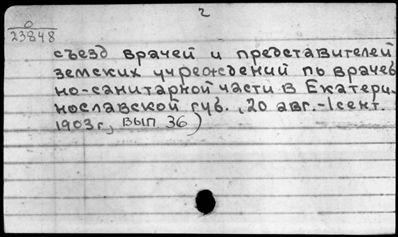 2
0
23848
съезд врачей и представителей
земских учреждений по врачеб
но-санитарной части в Екатери-
нославской губ., 20 авг.-1сент.
1903г, вып 36)